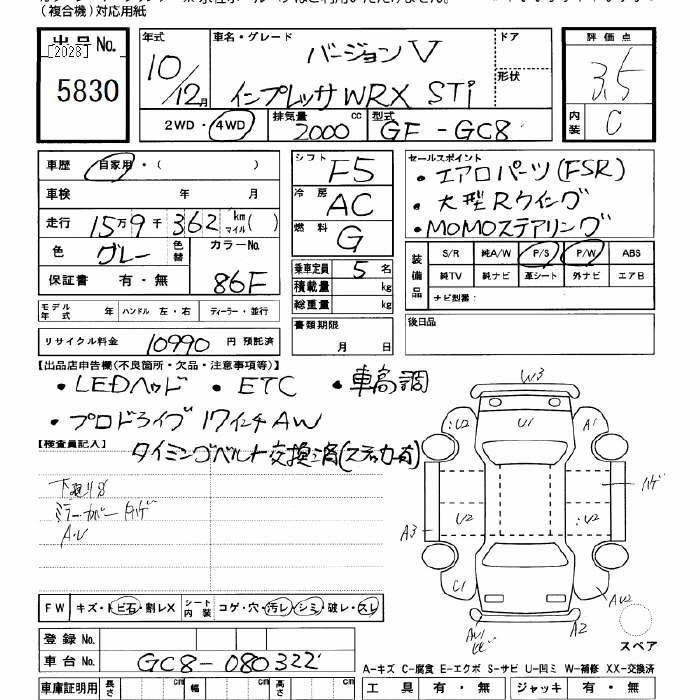 (複合機)対応用紙
出品No.
[2028]
5830
年式
10/12月
車名・グレード
バージョンV
インプレッサWRX STi
ドア
形状
評価点
3.5
内装
C
2WD・4WD
排気量
2000
cc
型式
GF-GC8
車歴
自家用・( )
車検 年 月
走行
15万9千362
km
マイル( )
色
グレー
色替
カラーNo.
86F
保証書 有・無
モデル年式 年
ハンドル 左・右
ディーラー・並行
リサイクル料金 10990 円 預託済
シフト F5
冷房 AC
燃料 G
乗車定員 5 名
積載量 kg
総重量 kg
書類期限
月 日
セールスポイント
・エアロパーツ(FSR)
・大型Rウイング
・MOMOステアリング
装備品
S/R 純A/W P/S P/W ABS
純TV 純ナビ 革シート 外ナビ エアB
ナビ型番:
後日品
【出品店申告欄(不良箇所・欠品・注意事項等)】
・LEDヘッド ・ETC ・車高調
・プロドライブ 17インチAW
タイミングベルト交換済(ステッカー有)
【検査員記入】
下廻りS
ミラーカバー ハゲ
A・U
W3
U2
U1
A1
ハゲ
A3
U2
U2
C1
AU2
AU1
A2
スペア
FW キズ・トビ石・割レX
シート内装 コゲ・穴・汚レ・シミ・破レ・スレ
登録No.
車台No. GC8-080322
車庫証明用 長さ cm 幅 cm 高さ cm
A-キズ C-腐食 E-エクボ S-サビ U-凹ミ W-補修 XX-交換済
工具 有・無 ジャッキ 有・無